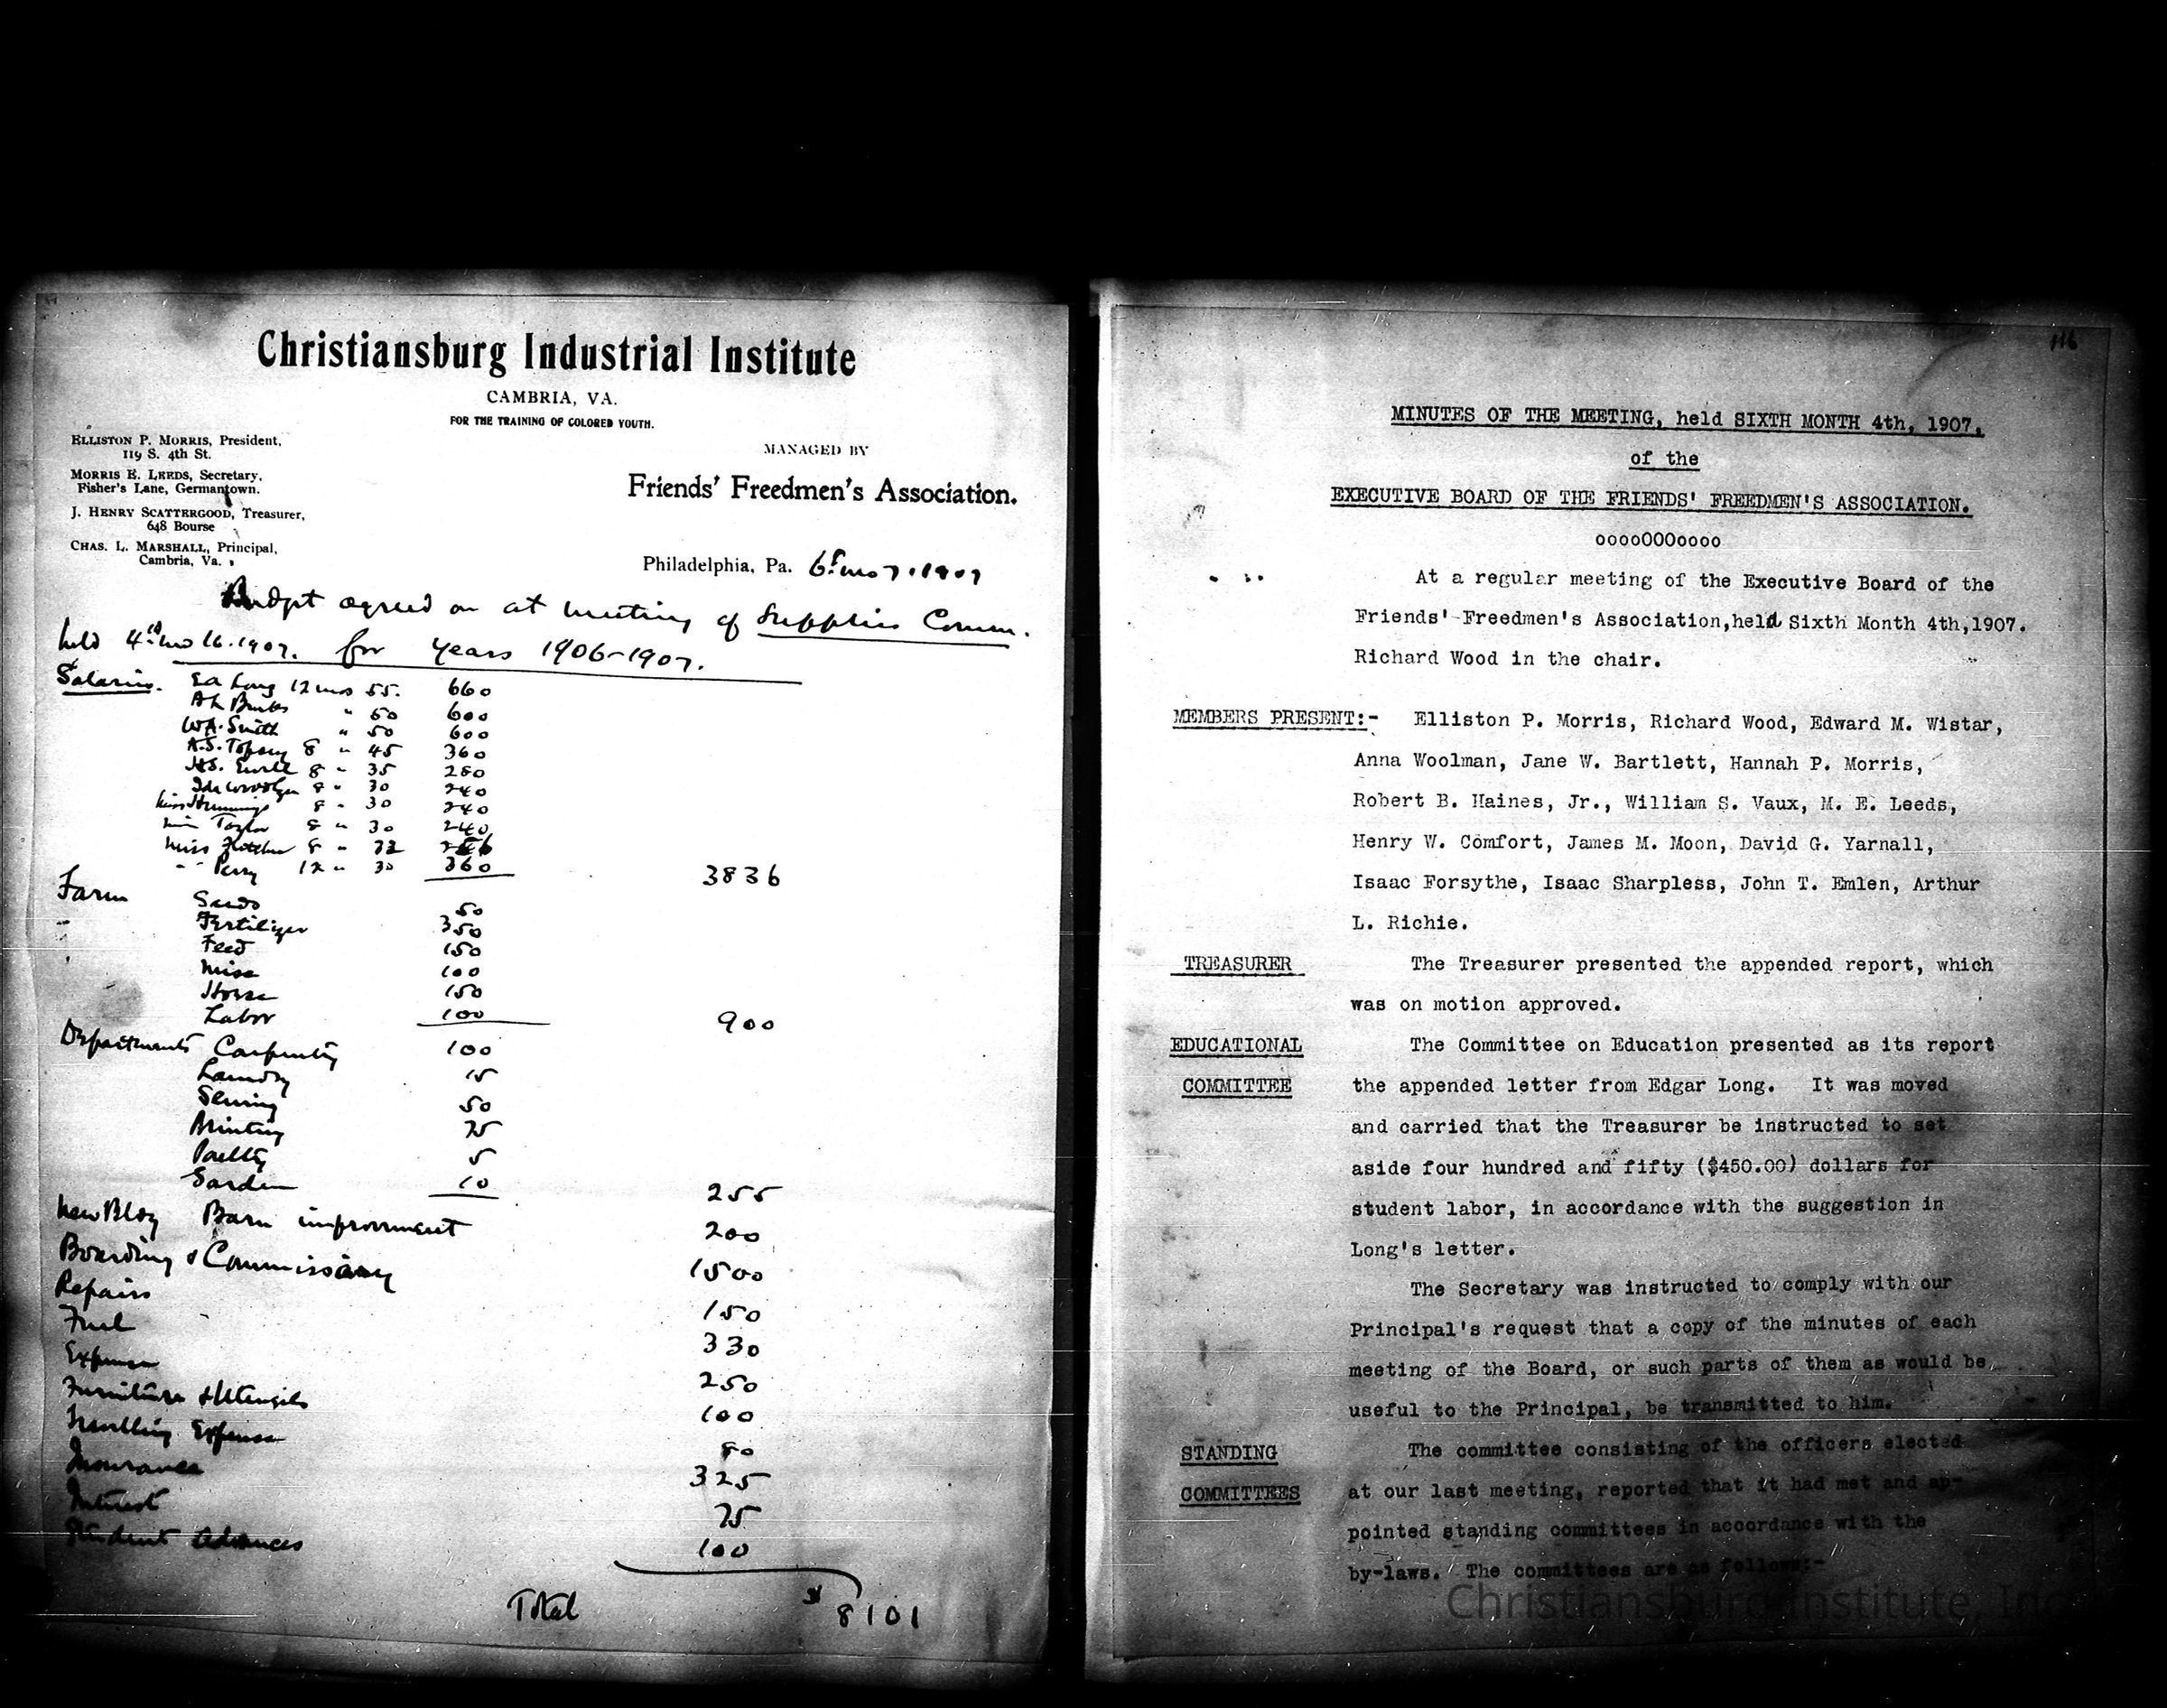 Christiansburg Industrial Institute
CAMBRIA, VA.
FOR THE TRAINING OF COLORED YOUTH.
ELLISTON P. MORRIS, President,
119 S. 4th St.
MORRIS E. LEEDS, Secretary,
Fisher's Lane, Germantown.
J. HENRY SCATTERGOOD, Treasurer,
648 Bourse
CHAS. L. MARSHALL, Principal,
Cambria, Va.
MANAGED BY
Friends' Freedmen's Association.
Philadelphia, Pa. 6th mo 7. 1907
Budget agreed on at meeting of Supplies Comm.
held 4th mo 16. 1907. for years 1906-1907.
Salaries. Ea Long 12 mos 55. 660
" 50 600
WA. Smith " 50 600
A.S. 8 " 45 360
8 " 35 280
8 " 30 240
Miss Hummings 8 " 30 240
Miss Taylor 8 " 30 240
Miss Fletcher 8 " 32 256
" Perry 12 " 30 360 3836
Farm Seeds 50
Fertilizer 350
Feed 150
Misc 100
Horse 150
Labor 100 900
Departments Carpentry 100
Laundry 15
Sewing 50
Printing 75
Poultry 5
Garden 10 255
New Bldg Barn improvement 200
Boarding & Commissary 1500
Repairs 150
Fuel 330
Expense 250
Furniture & Utensils 100
Travelling Expense 80
Insurance 325
Interest 75
Student Advances 100
Total $ 8101
116
MINUTES OF THE MEETING, held SIXTH MONTH 4th, 1907,
of the
EXECUTIVE BOARD OF THE FRIENDS' FREEDMEN'S ASSOCIATION.
ooooOOOoooo
At a regular meeting of the Executive Board of the
Friends' Freedmen's Association,held Sixth Month 4th,1907.
Richard Wood in the chair.
MEMBERS PRESENT:- Elliston P. Morris, Richard Wood, Edward M. Wistar,
Anna Woolman, Jane W. Bartlett, Hannah P. Morris,
Robert B. Haines, Jr., William S. Vaux, M. E. Leeds,
Henry W. Comfort, James M. Moon, David G. Yarnall,
Isaac Forsythe, Isaac Sharpless, John T. Emlen, Arthur
L. Richie.
TREASURER The Treasurer presented the appended report, which
was on motion approved.
EDUCATIONAL The Committee on Education presented as its report
COMMITTEE the appended letter from Edgar Long. It was moved
and carried that the Treasurer be instructed to set
aside four hundred and fifty ($450.00) dollars for
student labor, in accordance with the suggestion in
Long's letter.
The Secretary was instructed to comply with our
Principal's request that a copy of the minutes of each
meeting of the Board, or such parts of them as would be
useful to the Principal, be transmitted to him.
STANDING The committee consisting of the officers elected
COMMITTEES at our last meeting, reported that it had met and ap-
pointed standing committees in accordance with the
by-laws. The committees are as follows:-
Christiansburg Institute, Inc